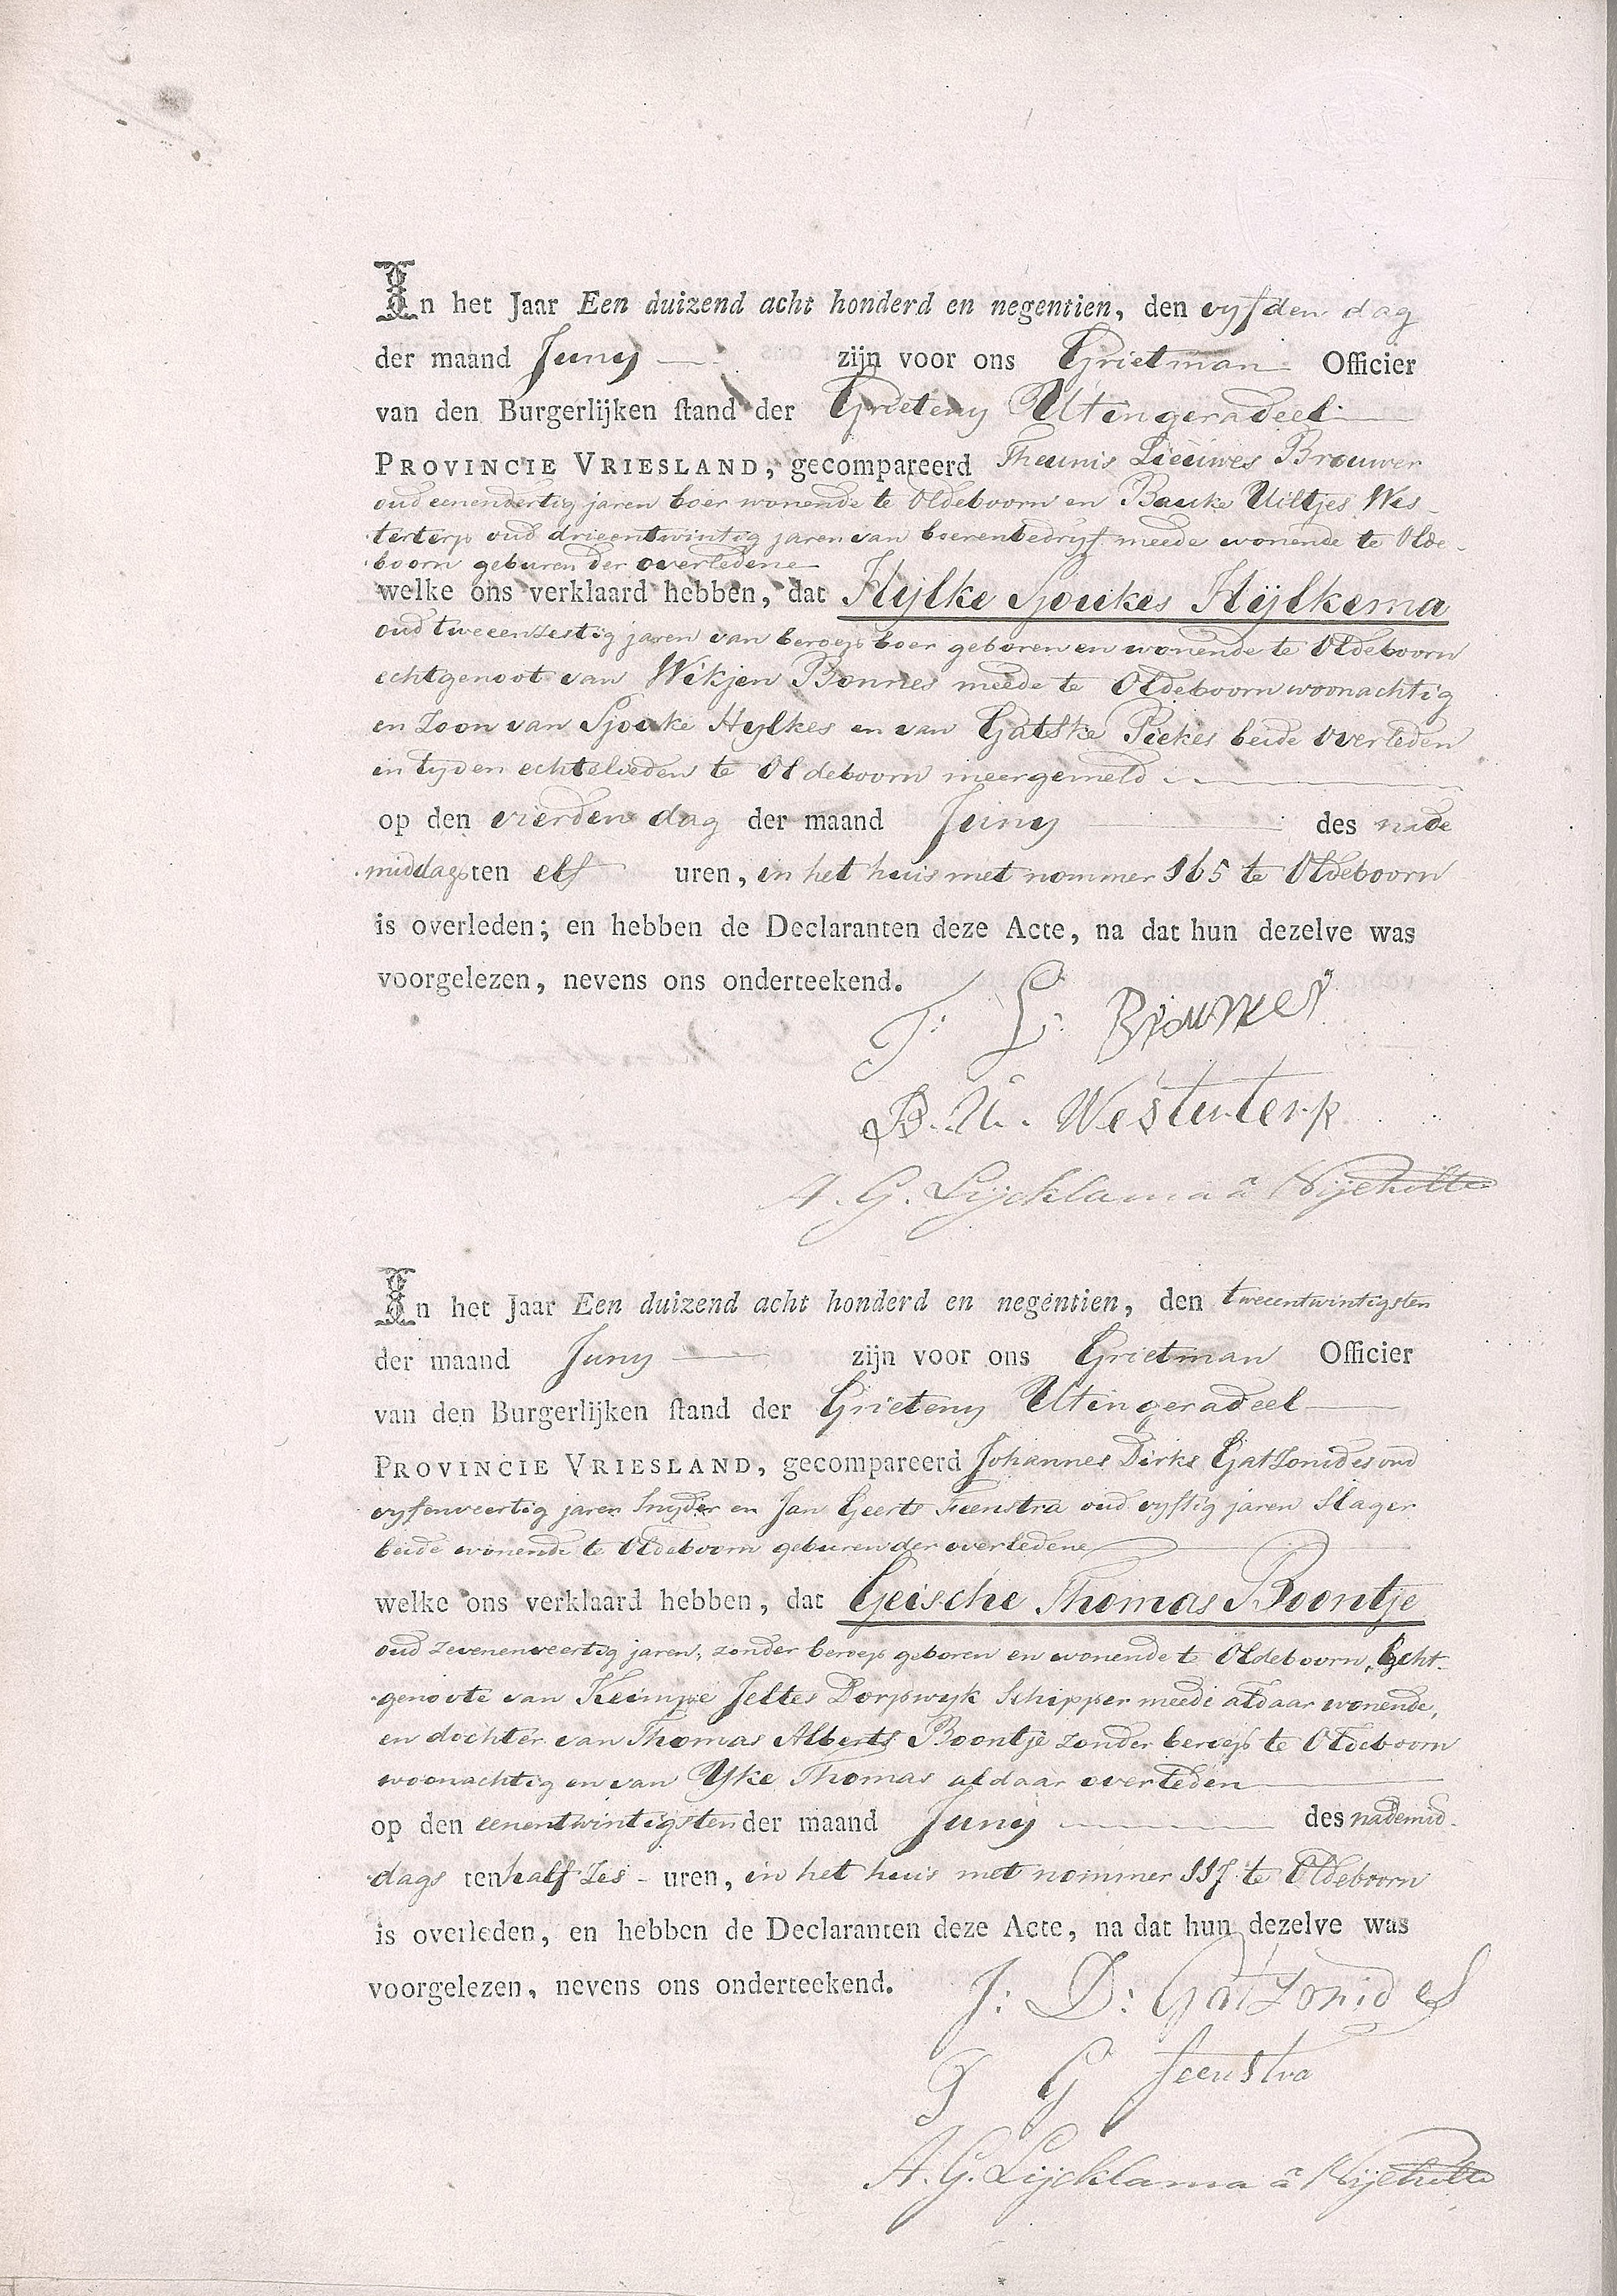 In het Jaar Een duizend acht honderd en negentien, den vyfden dag
der maand Juny zijn voor ons Grietman Officier
van den Burgerlijken stand der Grieteny Utingeradeel
PROVINCIE VRIESLAND, gecompareerd Theunis Lieuwes Brouwer
oud eenendertig jaren boer wonende te Oldeboorn en Bauke Uiltjes Wes-
terterp oud drieentwintig jaren van boerenbedryf meede wonende te Olde-
boorn geburen der overledene
welke ons verklaard hebben, dat Hylke Sjoukes Hylkema
oud tweeenzestig jaren van beroep boer geboren en wonende te Oldeboorn
echtgenoot van Wikjen Bonnes meede te Oldeboorn woonachtig
en Zoon van Sjouke Hylkes en van Gatske Piekes beide overleden
in tyden echtelieden te Oldeboorn meergemeld
op den vierden dag der maand Juny des
middags ten elf uren, in het huis met nommer 165 te Oldeboorn
is overleden; en hebben de Declaranten deze Acte, na dat hun dezelve was
voorgelezen, nevens ons onderteekend.
T: L: Brouwer
B. U. Westerterp
A. G. Lycklama à Nijeholt
In het Jaar Een duizend acht honderd en negentien, den tweeentwintigsten
der maand Juny zijn voor ons Grietman Officier
van den Burgerlijken stand der Grieteny Utingeradeel
PROVINCIE VRIESLAND, gecompareerd Johannes Dirks Gatzonides oud
vyfenveertig jaren Snyder en Jan Geerts Feenstra oud vyftig jaren Slager
beide wonende te Oldeboorn geburen der overledene
welke ons verklaard hebben, dat Geische Thomas Boontje
oud zevenenveertig jaren, zonder beroep geboren en wonende te Oldeboorn, Echt-
genoote van Keimpe Jeltes Dorpwyk Schipper meede aldaar wonende,
en dochter van Thomas Alberts Boontje zonder beroep te Oldeboorn
woonachtig en van Yke Thomas aldaar overleden
op den eenentwintigsten der maand Juny des nademid-
dags ten half Zes uren, in het huis met nommer 117 te Oldeboorn
is overleden, en hebben de Declaranten deze Acte, na dat hun dezelve was
voorgelezen, nevens ons onderteekend.
J: D: Gatzonides
J G feenstra
A. G. Lycklama à Nijeholt